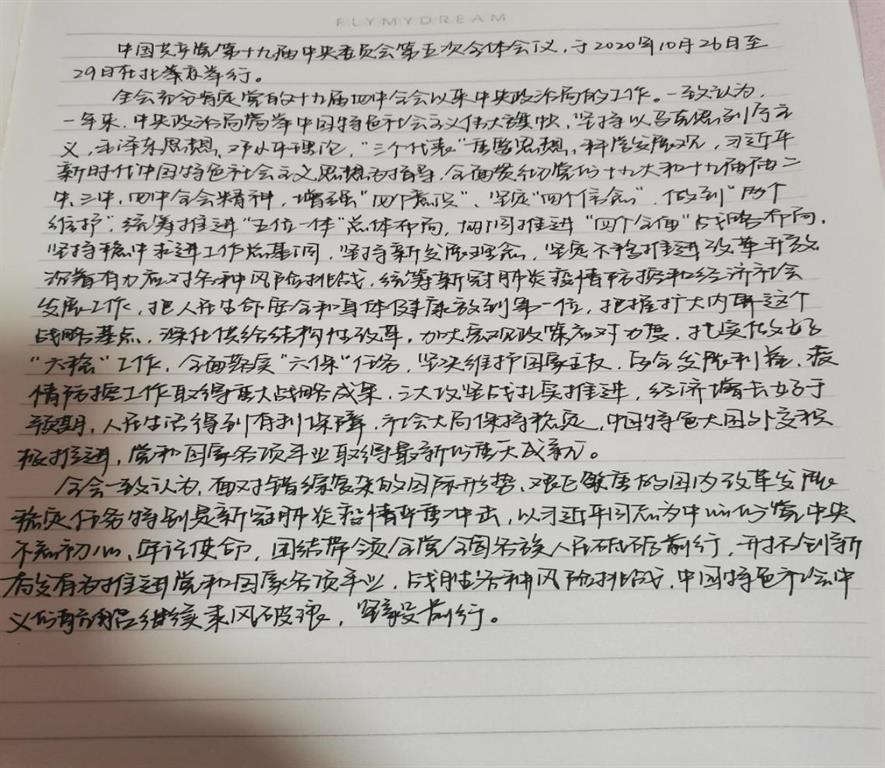 FLYMYDREAM
中国共产党第十九届中央委员会第五次全体会议，于2020年10月26日至
29日在北京举行。
全会充分肯定党的十九届四中全会以来中央政治局的工作。一致认为，
一年来，中央政治局高举中国特色社会主义伟大旗帜，坚持以马克思列宁主
义，毛泽东思想，邓小平理论，“三个代表”重要思想，科学发展观，习近平
新时代中国特色社会主义思想为指导，全面贯彻党的十九大和十九届二
中，三中，四中全会精神，增强“四个意识”、坚定“四个自信”，做到“两个
维护”，统筹推进“五位一体”总体布局，协同推进“四个全面”战略布局，
坚持稳中求进工作总基调，坚持新发展理念，坚定不移推进改革开放
沉着有力应对各种风险挑战，统筹新冠肺炎疫情防控和经济社会
发展工作，把人民生命安全和身体健康放到第一位，把握扩大内需这个
战略基点，深化供给结构性改革，加大宏观政策应对力度，扎实做好
“六稳”工作，全面落实“六保”任务，坚决维护国家主权，安全发展利益，疫
情防控工作取得重大战略成果，三大攻坚战扎实推进，经济增长好于
预期，人民生活得到有利保障，社会大局保持稳定，中国特色大国外交积
极推进，党和国家各项事业取得最新的重大成就。
全会一致认为，面对错综复杂的国际形势、艰巨繁重的国内改革发展
稳定任务特别是新冠肺炎疫情严重冲击，以习近平同志为中心的党中央
不忘初心、牢记使命，团结带领全党全国各族人民砥砺前行，开拓创新
奋发有为推进党和国家各项事业，战胜各种风险挑战，中国特色社会主
义的航船继续乘风破浪，坚毅前行。